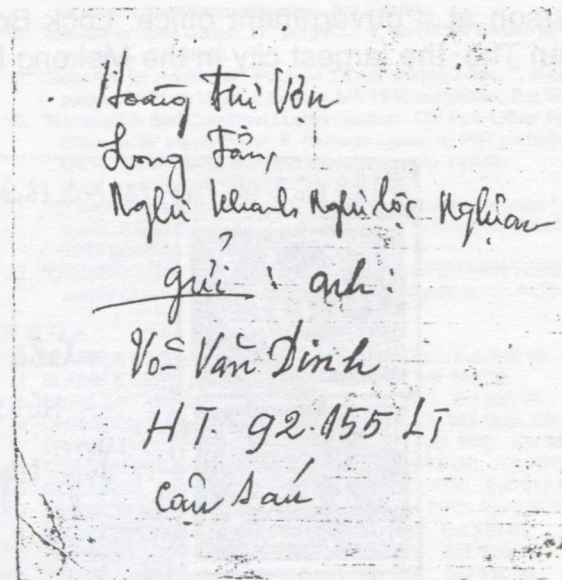 Hoàng Thị Vân
Long Tân,
Nghi Khánh Nghi lộc Nghệ an
gửi : anh :
Võ Văn Dinh
HT 92.155 LT